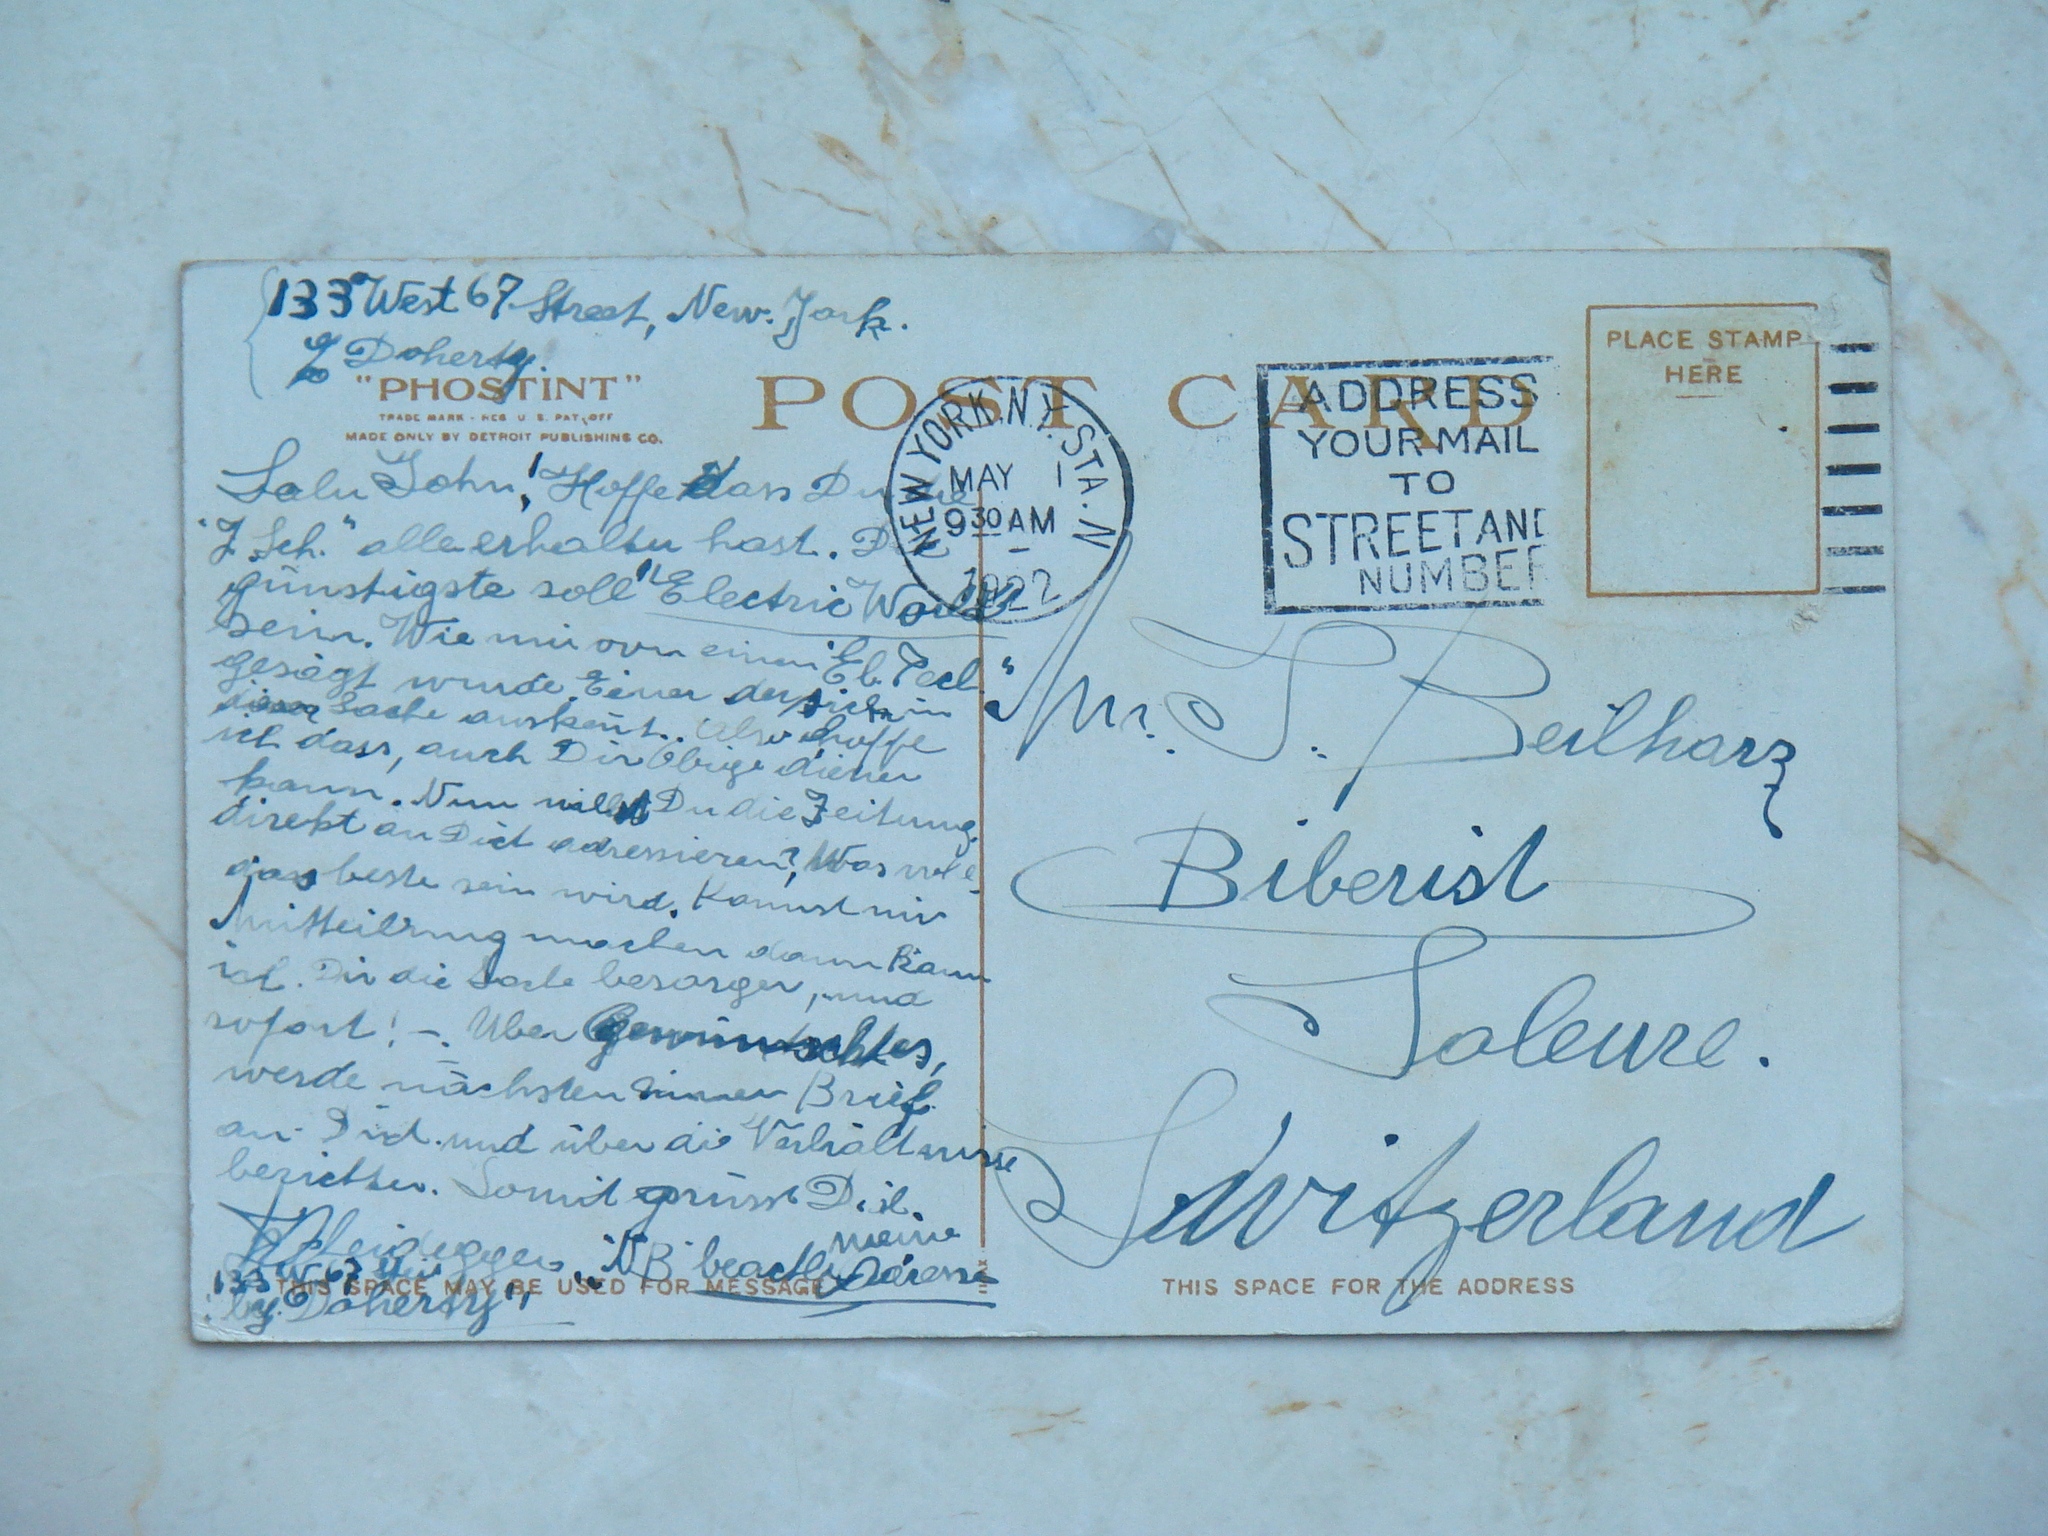 133 West 67 Street, New-York.
℅ Doherty.
"PHOSTINT"
TRADE MARK - REG U.S. PAT. OFF
MADE ONLY BY DETROIT PUBLISHING CO.
POST CARD
PLACE STAMP
HERE
NEW YORK, N.Y. STA. N
MAY 1
930 AM
1922
ADDRESS
YOUR MAIL
TO
STREET AND
NUMBER
Salu John! Hoffe dass Du die
"Z. Sch." alle erhalten hast. Die
günstigste soll "Electric World"
sein. Wie mir von einem "El. Tecl."
gesagt wurde. Einer der sich in
dieser Sache auskent. Also hoffe
ich dass, auch Dir Obige dienen
kann. Nun willst Du die Zeitung
direkt an Dich adressieren? Was wol
das beste sein wird. Kannst mir
Mitteilung machen dann kann
ich Dir die Sache besorgen, und
sofort! -. Über Gewünschtes,
werde nächsten einen Brief
an Dich und über die Verhältnisse
berichten. Somit grüsst Dich
Heidegger. "NB" beacht meine Adresse
133 W. 67 Str
by. Doherty"
THIS SPACE MAY BE USED FOR MESSAGE
Mr. S. Beilharz
Biberist
Soleure.
Switzerland
THIS SPACE FOR THE ADDRESS